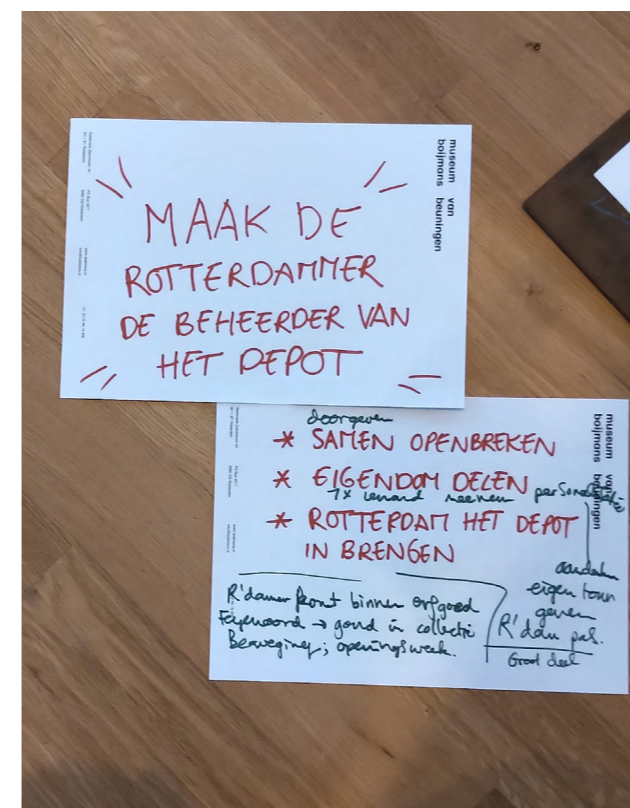 museum van
boijmans beuningen
MAAK DE
ROTTERDAMMER
DE BEHEERDER VAN
HET DEPOT
museum van
boijmans beuningen
doorgeven
* SAMEN OPENBREKEN
* EIGENDOM DELEN
1x iemand meenemen
* ROTTERDAM HET DEPOT
IN BRENGEN
R'damer komt binnen erfgoed
Feyenoord → goud in collectie
Beweging; openingsweek.
eigen
geven
R'dam pas.
Groot deel